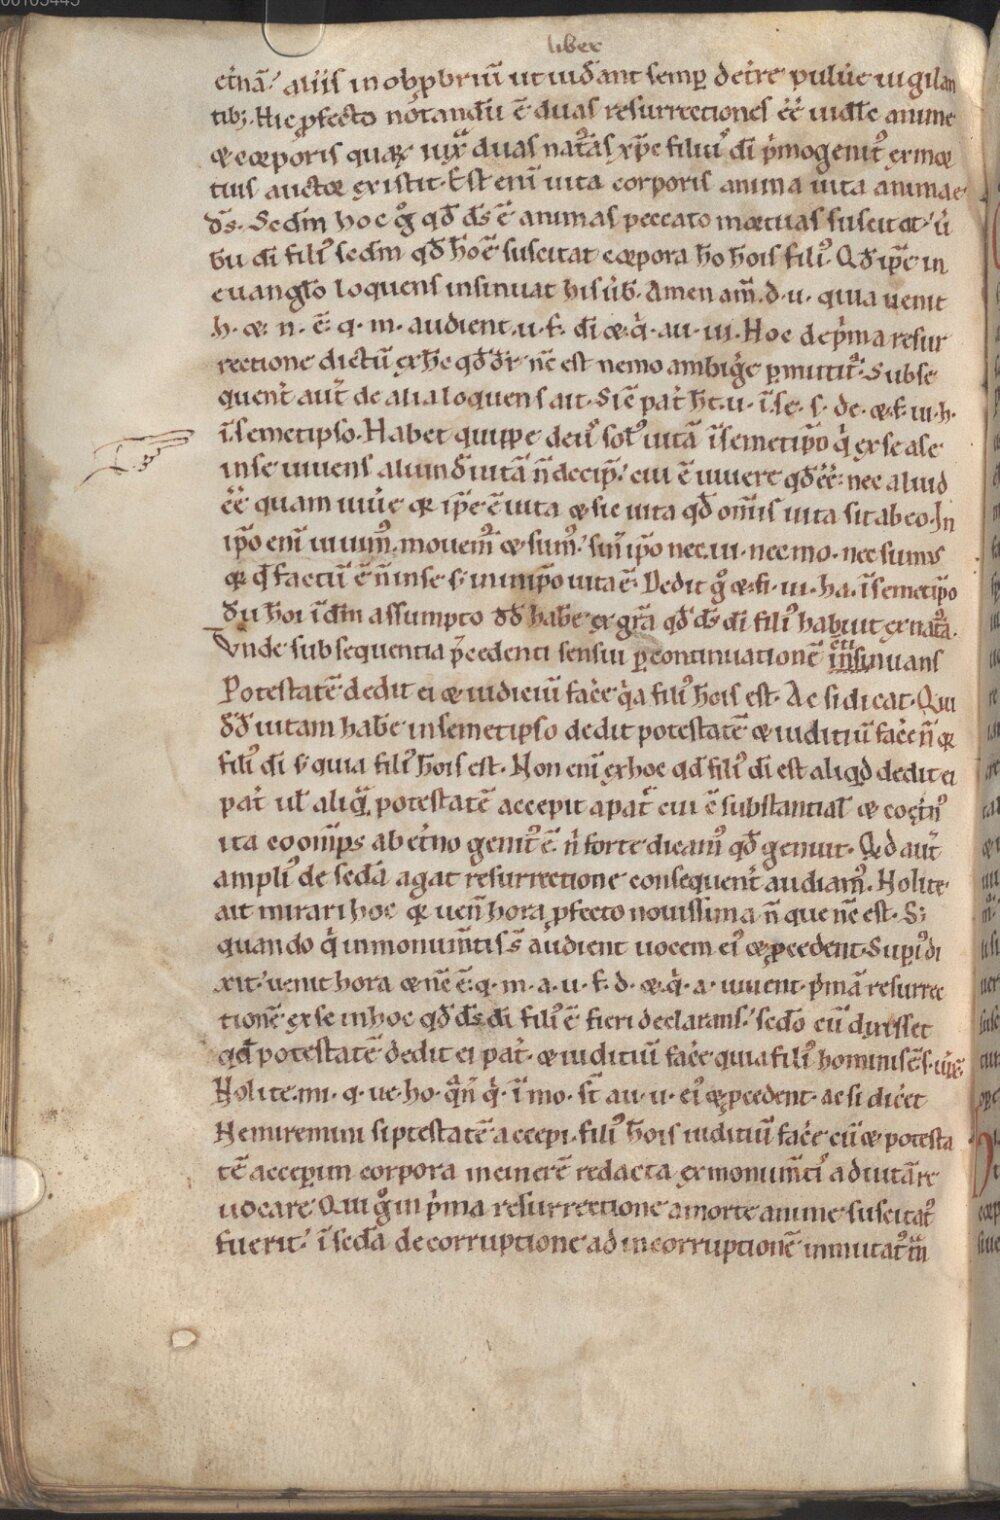 liber
et̾nā. aliis in obꝓbriū ut uiđant semꝑ det̾re puluıe uigilan
tib; Hic ꝓfecto notandū ē duas resurrectiones ēē uidl̄e anime
⁊ corporis quaꝝ iux̄ duas nat̾as xp̄c filiꝰ dī p̾mogenitꝰ ex mor
tuis auctor existit. Est enī uita corporis anima uita animae
d̄s. Scđm hoc g̊ qđ d̄s ē animas peccato mortuas suscitat. ú
bū dī filiꝰ secđm qđ hō ē suscitat corpora hō hoīs filiꝰ. Qđ ip̄e in
euangl̄o loquens insinuat his úb̄. Amen am̄. d. u. quia uenit
h. ⁊. n. ē. q. m. audient. u. f. dī ⁊. q̾. au. ui. Hoc de p̾ma resur
rectione dictū ex hc̄ qđ dr̄ nc̄ est nemo ambig̾e ꝑmittit̾. Subse
quent̾ aut̄ de alia loquens ait. Sic̄ pat̾ ht̄. u. ī. se. s. de. ⁊. f. ui. h.
ī. semetipso. Habet quippe deꝰ sol̾ uitā ī semetip̄o q̾ ex se a se
in se uiuens aliundē uitā n̄ accip̄. cui ē uiuere qđ ēē: nec aliud
ēē quam uiúe qr ip̄e ē uita ⁊ sic uita qđ om̄is uita sit ab eo. In
ip̄o enī uiuimꝰ. mouemꝰ ⁊ sumꝰ. sin̄ ip̄o nec. ui. nec mo. nec sumus
qr qđ factū ē n̄ in se s. in ip̄o uita ē. Dedit g̊ ⁊. fi. ui. ha. ī semetip̄o
đū hoi īdm̄ assumpto đđ hab̄e ex gr̄a qđ d̄s dī filiꝰ habuit ex nat̾a.
Vnde subsequentia p̄cedenti sensui ꝑ continuationē insinuans
Potestatē dedit ei ⁊ iudiciū fac̾e q̾a filiꝰ hoīs est. Ac si dicat. Qui
đđ uitam hab̄e in semetipso dedit potestatē ⁊ iuditiū fac̾e n̄ qr
filiꝰ dī s. quia filiꝰ hoīs est. Non enī ex hoc qđ filiꝰ dī est aliqđ dedit ei
pat̾ ul̄ aliq̄. potestatē accepit a pat̾ cui ē substantial̄ ⁊ coet̾nꝰ
ita eo om̄ps ab et̾no genitꝰ ē. n̾ forte dicamꝰ qđ genuit. Qđ aut̄
ampliꝰ de secđa agat resurrectione consequent̾ audiamꝰ. Nolite
ait mirari hoc qr uen̄ hora ꝓfecto nouissima n̄ que nc̄ est. S;
quando q̾ in monum̄tis s̄ audient uocem eiꝰ ⁊ ꝓcedent. Supiꝰ di
xit. uenit hora ⁊ nc̄ ē. q. m. a. u. f. d. ⁊. q̾. a. uiuent. p̾mā resurrec
tionē ex se in hoc qđ d̄s dī filiꝰ ē fieri declarans. secđo cū dixisset
qđ potestatē dedit ei pat̾. ⁊ iuditiū fac̾e quia filiꝰ hominis ē
Nolite. mi. q. ue. ho. q̄n̄ q̾. ī mo. st̄ au. u. eiꝰ ⁊ ꝓcedent. ac si dic̾et
Ne miremini si ptestatē accepi. filiꝰ hoīs iuditiū fac̾e cū ⁊ potesta
tē acceperim corpora in cinerē redacta ex monum̄tiꝰ ad uitā re
uocare. Qui g̊ in p̾ma resurrectione a morte anime suscitatꝰ
fuerit. ī secđa de corruptione ad incorruptionē inmutatꝰ